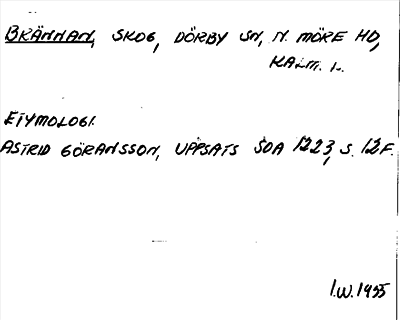 BRÄNNAN, SKOG, DÖRBY SN, N. MÖRE HD,
KALM. L.
ETYMOLOGI.
ASTRID GÖRANSSON, UPPSATS SOA 1223, S. 12 F.
I.W. 1955